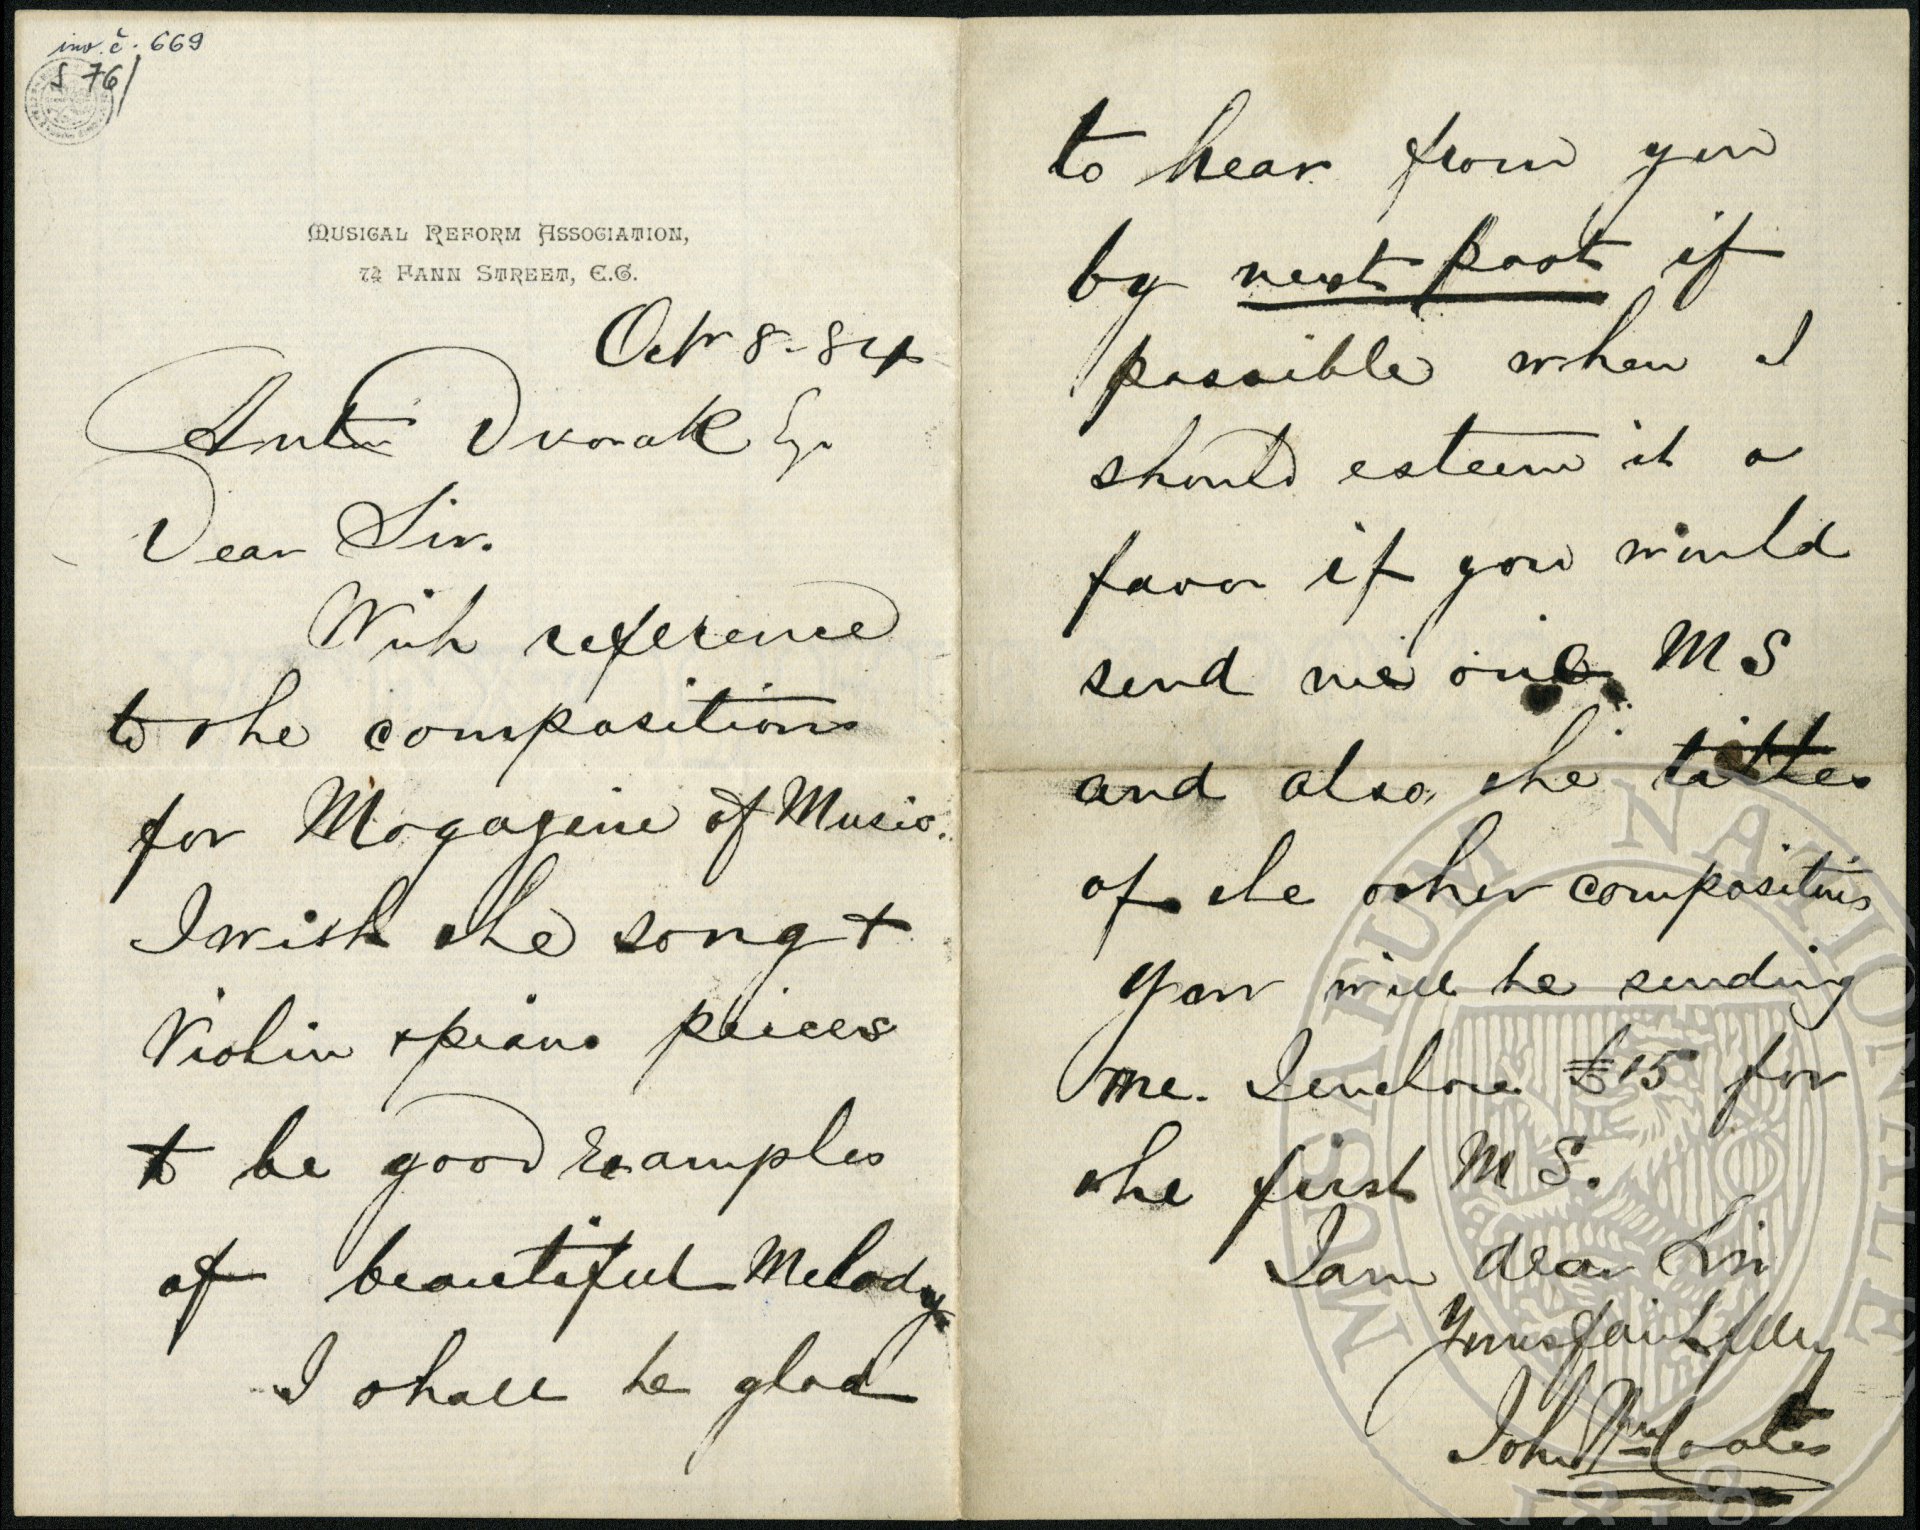 inv. č. 669
S 76/
MUSICAL REFORM ASSOCIATION,
74 FANN STREET, E.C.
Octr 8-84
Anton Dvorak Esqr
Dear Sir.
With reference
to the compositions
for Magazine of Music.
I wish the song +
Violin + piano peices
to be good Examples
of beautiful Melody
I shall be glad
to hear from you
by next post if
possible when I
should esteem it a
favor if you would
send me one MS
and also the titles
of the other compositions
you will be sending
me. I enclose £15 for
the first MS.
I am dear Sir
Yours faithfully
John Wm Coates
MUSAEUM NATIONALE
1818